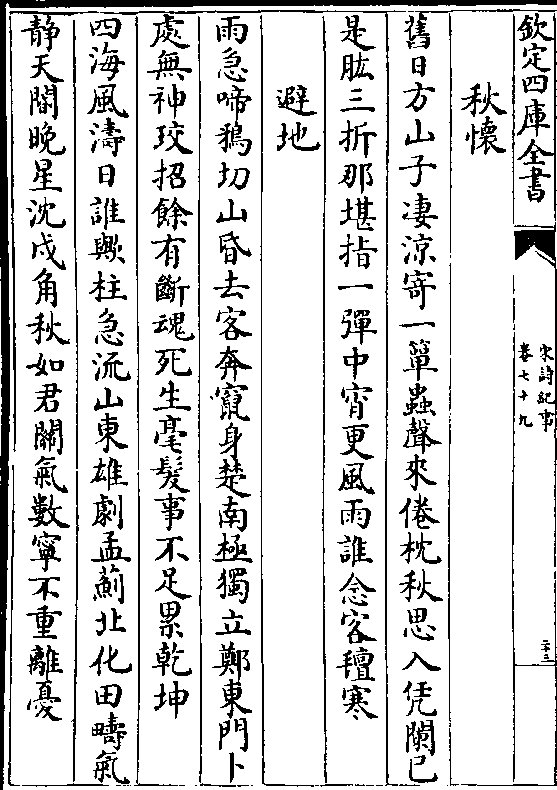 欽定四庫全書
宋詩紀事
卷七十九
二十三
秋懷
舊日方山子淒涼寄一簞蟲聲來倦枕秋思入凭闌已
是肱三折那堪指一彈中宵更風雨誰念客氊寒
避地
雨急啼鵶切山昏去客奔竄身楚南極獨立鄭東門卜
處無神珓招餘有斷魂死生毫髮事不足累乾坤
四海風濤日誰歟柱急流山東雄劇孟薊北化田疇氣
靜天閽晚星沈戍角秋如君關氣數寧不重離憂